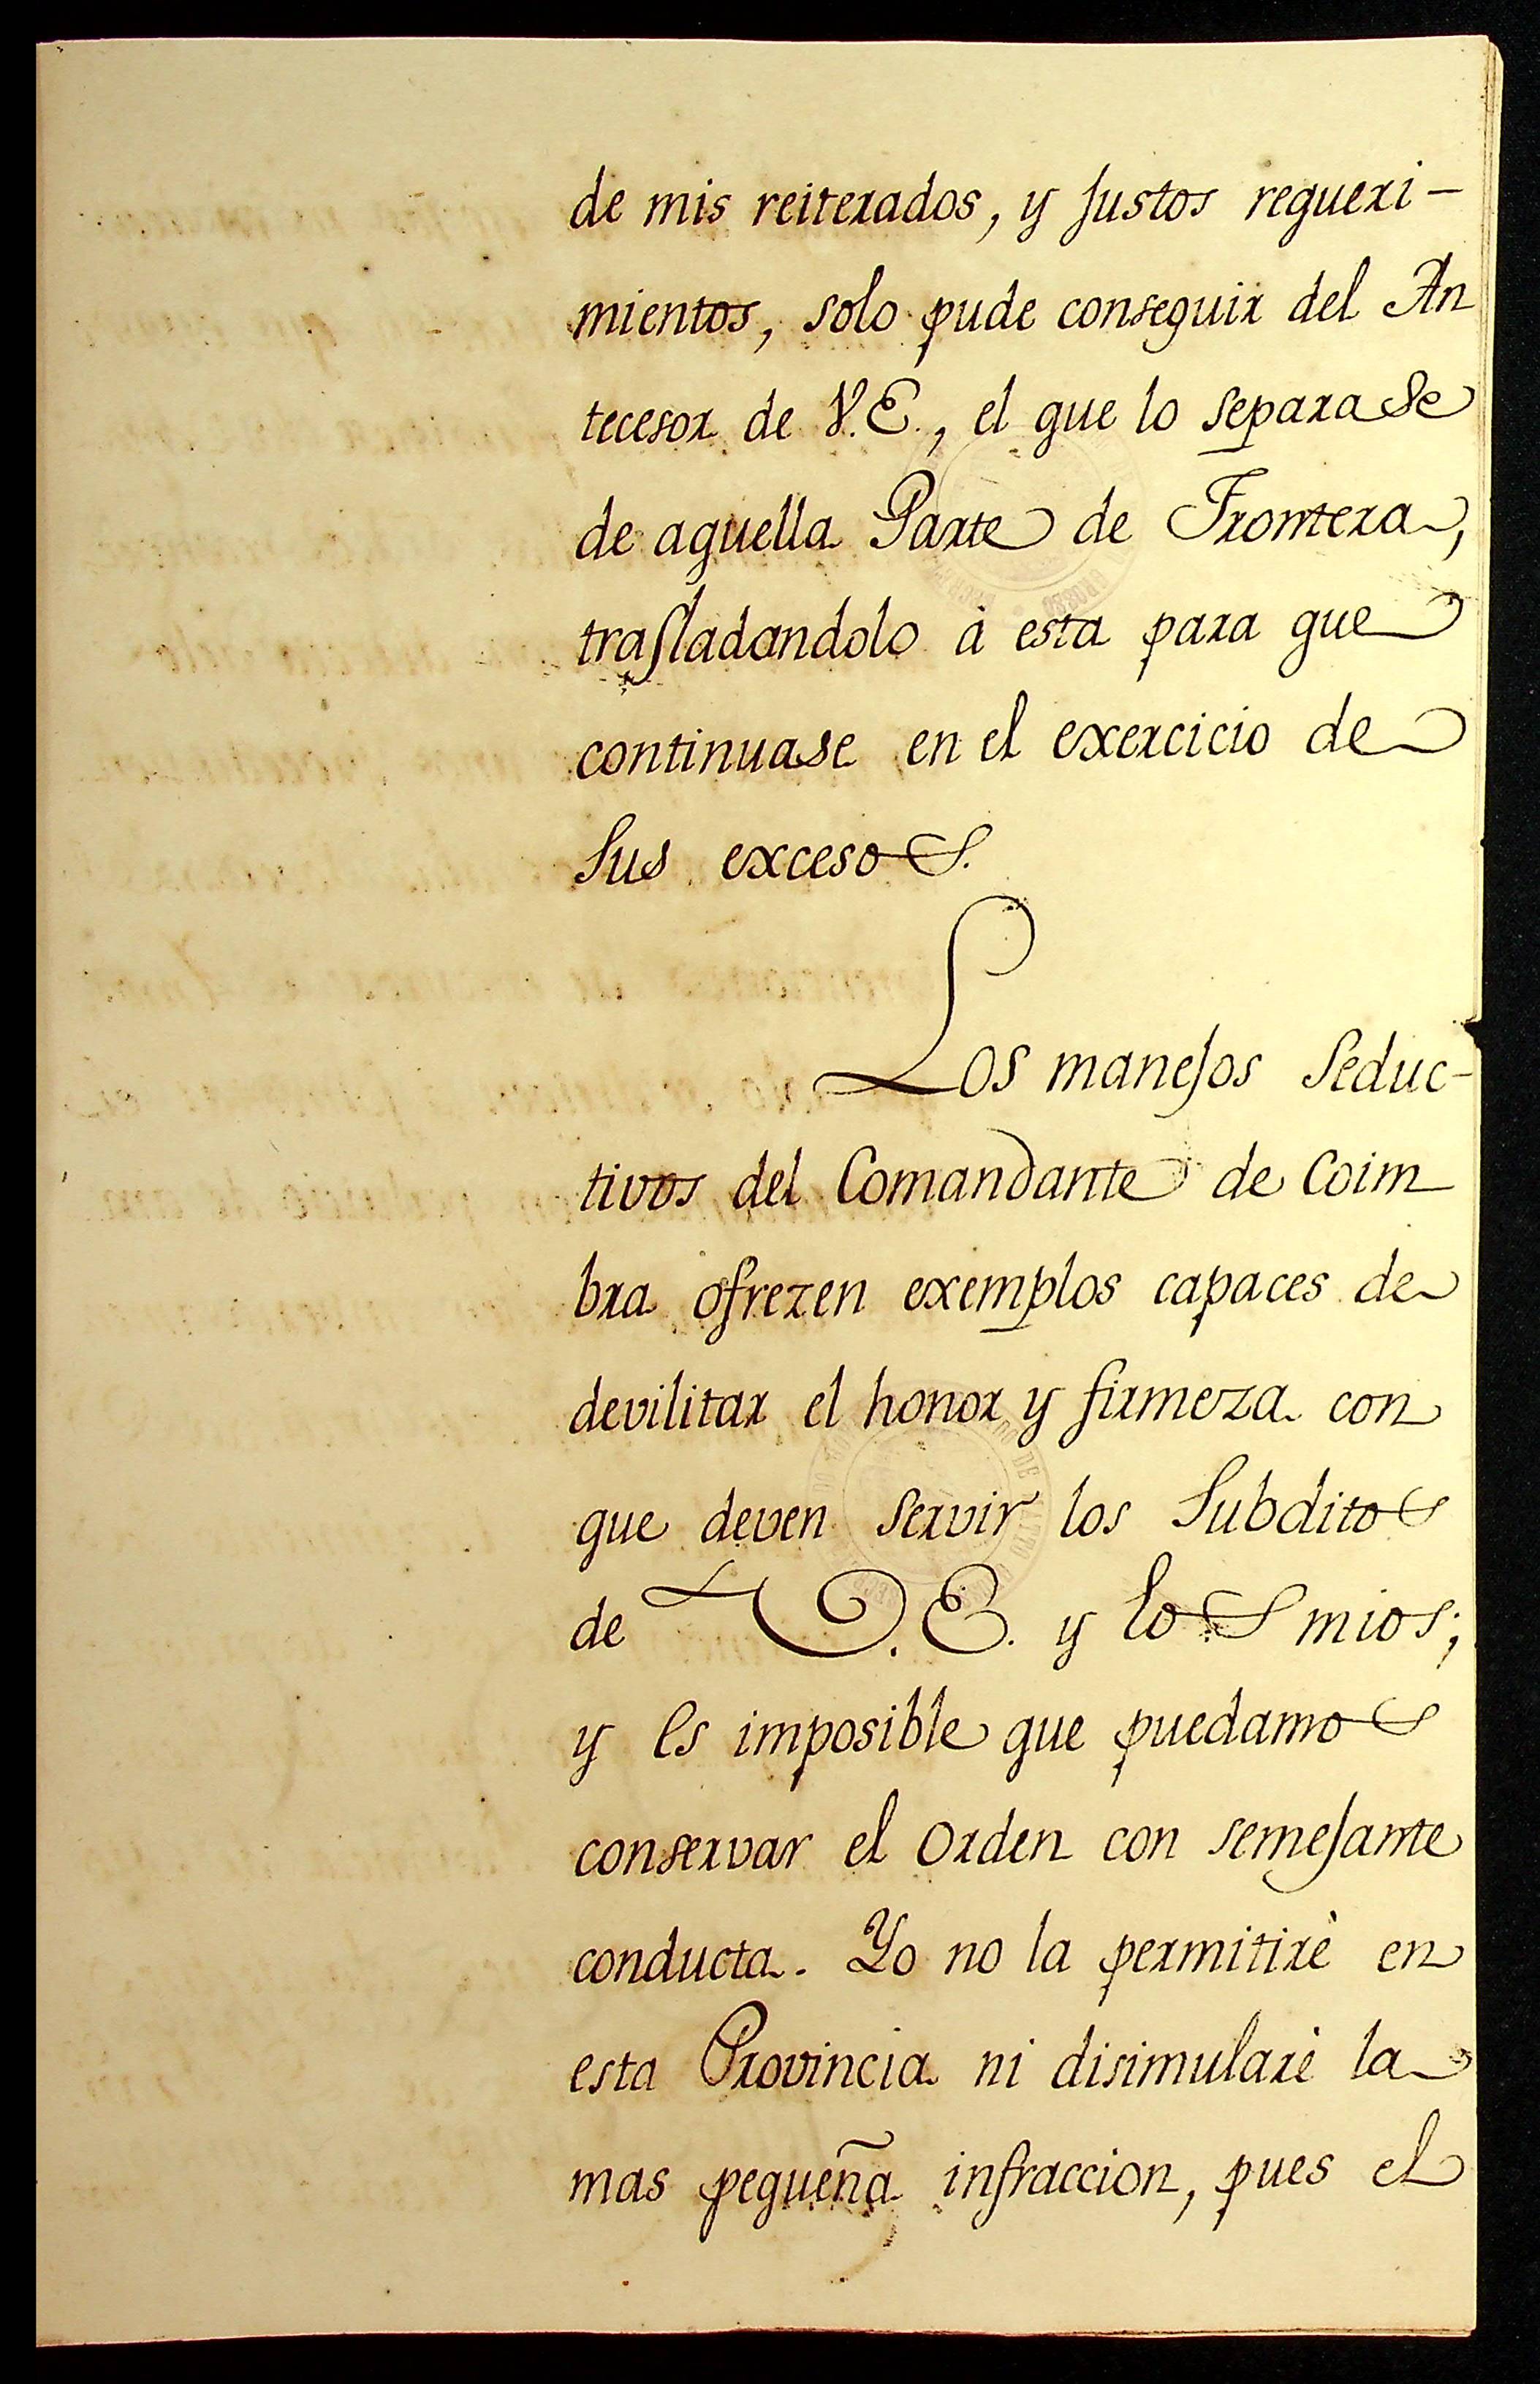 de mis reiterados, y justos requeri-
mientos, solo pude conseguir del An
tecesor de V.E., el que lo separase
de aquella Parte de Frontera,
trasladandolo à esta para que
continuase en el exercicio de
sus excesos.
Los manejos seduc-
tivos del Comandante de Coim
bra ofrezen exemplos capaces de
devilitar el honor y firmeza con
que deven servir los Subditos
de V.E. y los mios;
y es imposible que puedamos
conservar el orden con semejante
conducta. Yo no la permitirè en
esta Provincia ni disimularè la
mas pequeña infraccion, pues el